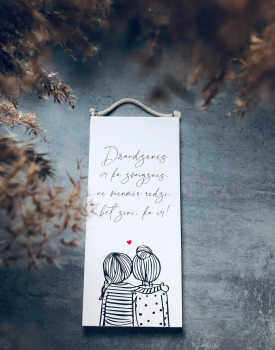 Draudzenes
ir kā zvaigznes,
ne vienmēr redzi,
bet zini, ka ir!